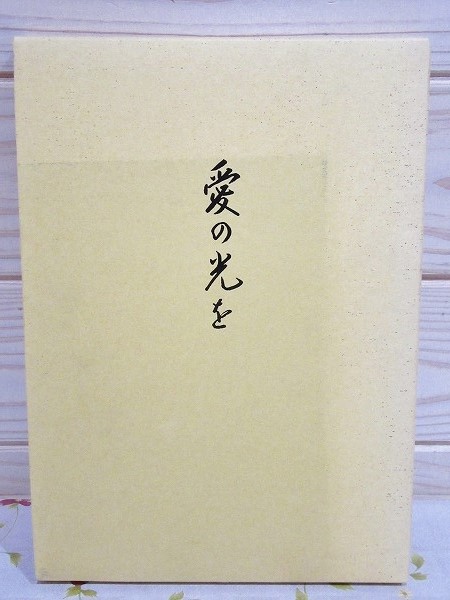 愛の光を